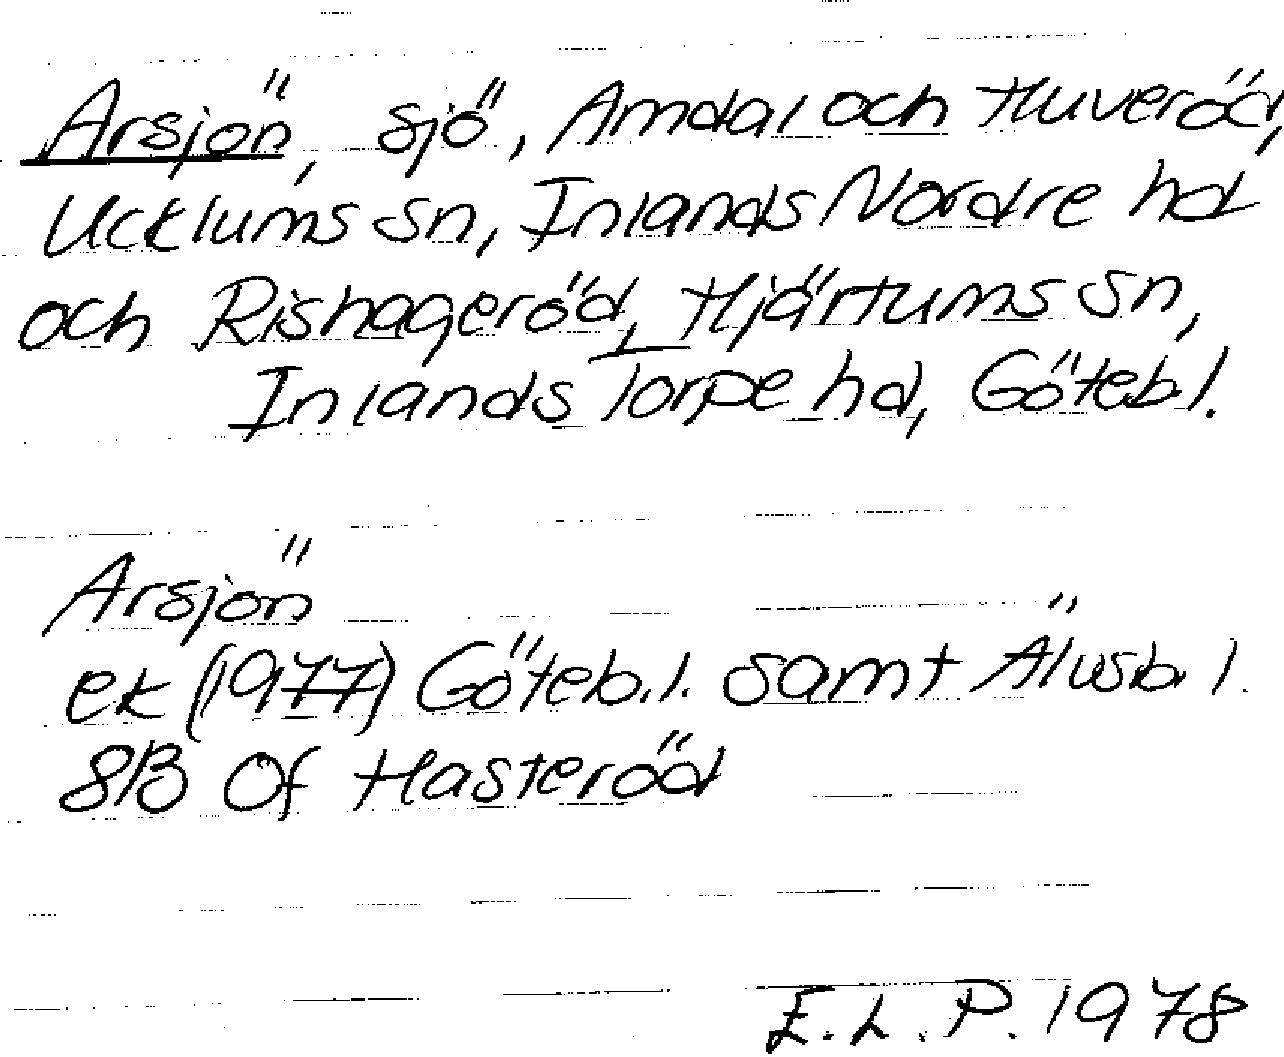 Arsjön, sjö, Amdal och Huveröd,
Ucklums sn, Inlands Nordre hd
och Rishageröd, Hjärtums sn,
Inlands Torpe hd, Göteb l.
Arsjön
ek (1977) Göteb. l. samt Älvsb. l.
8B 0f Hasteröd
E. L. P. 1978